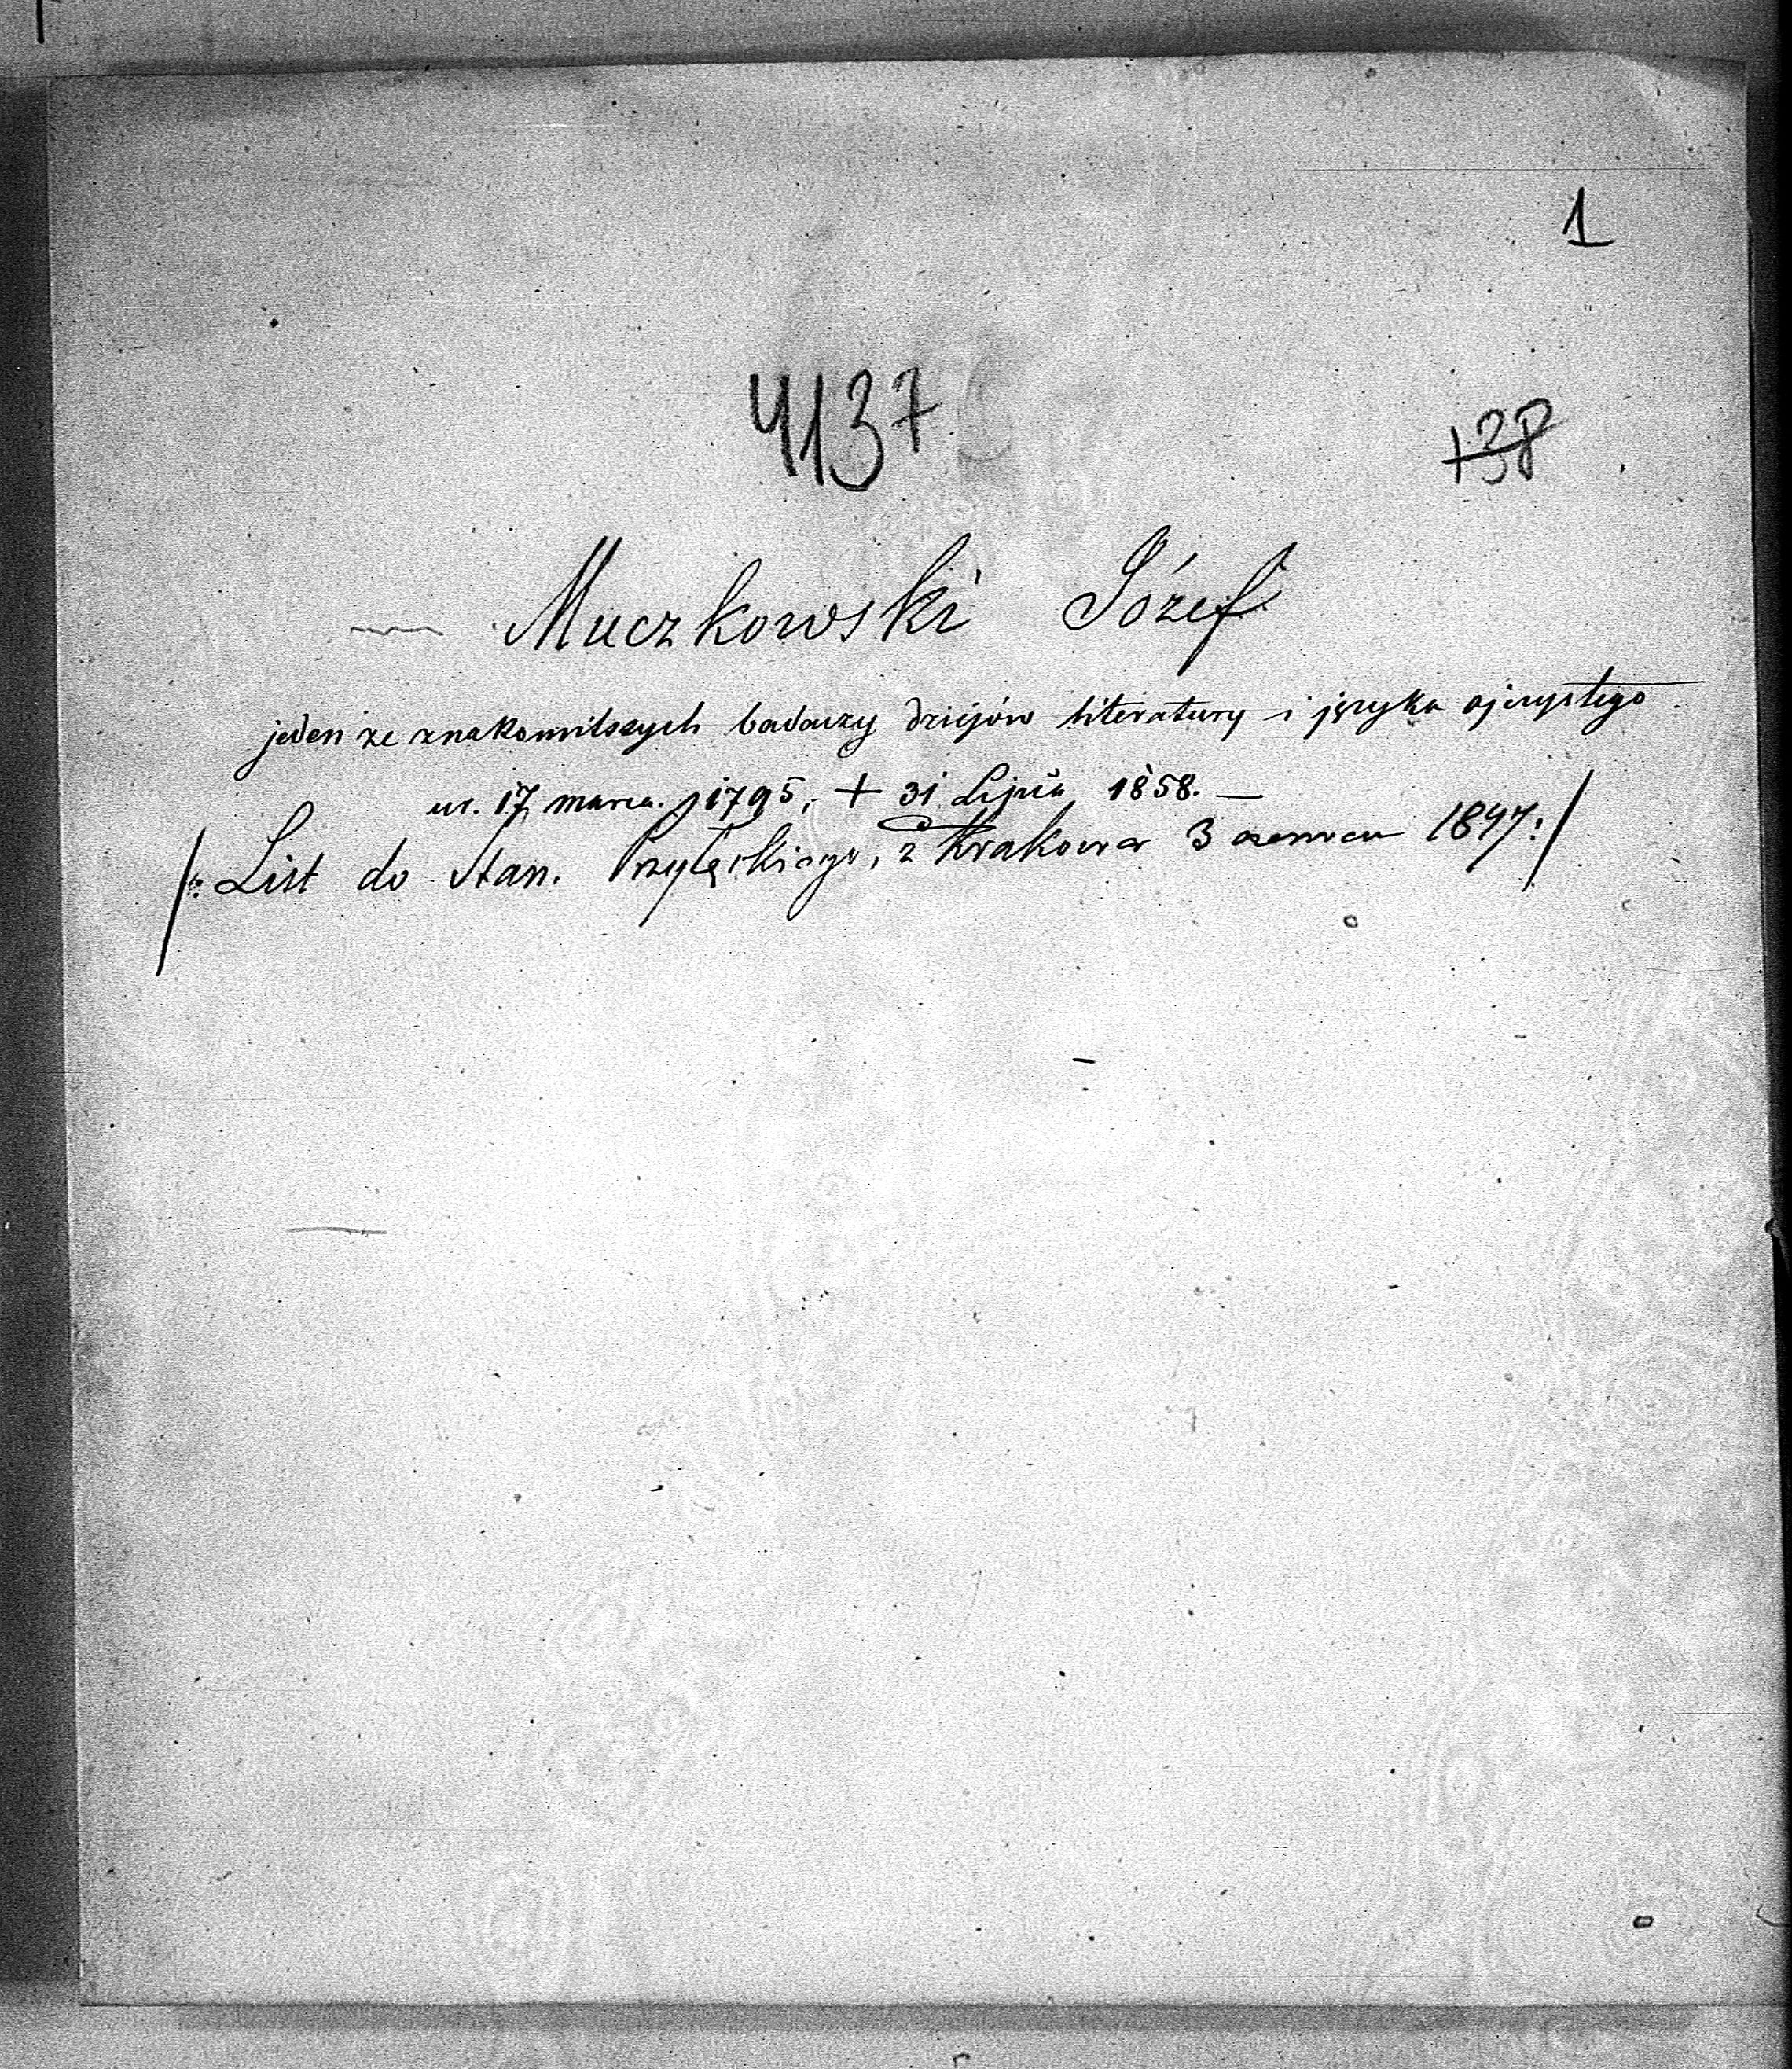 1
4137
138
Muczkowski Józef
jeden ze znakomitszych badaczy dziejów literatury i języka ojczystego.
ur. 17 marca. 1795, + 31 Lipca 1858. —
/: List do Stan. Przyłęckiego, z Krakowa 3 czerwca 1847 :/